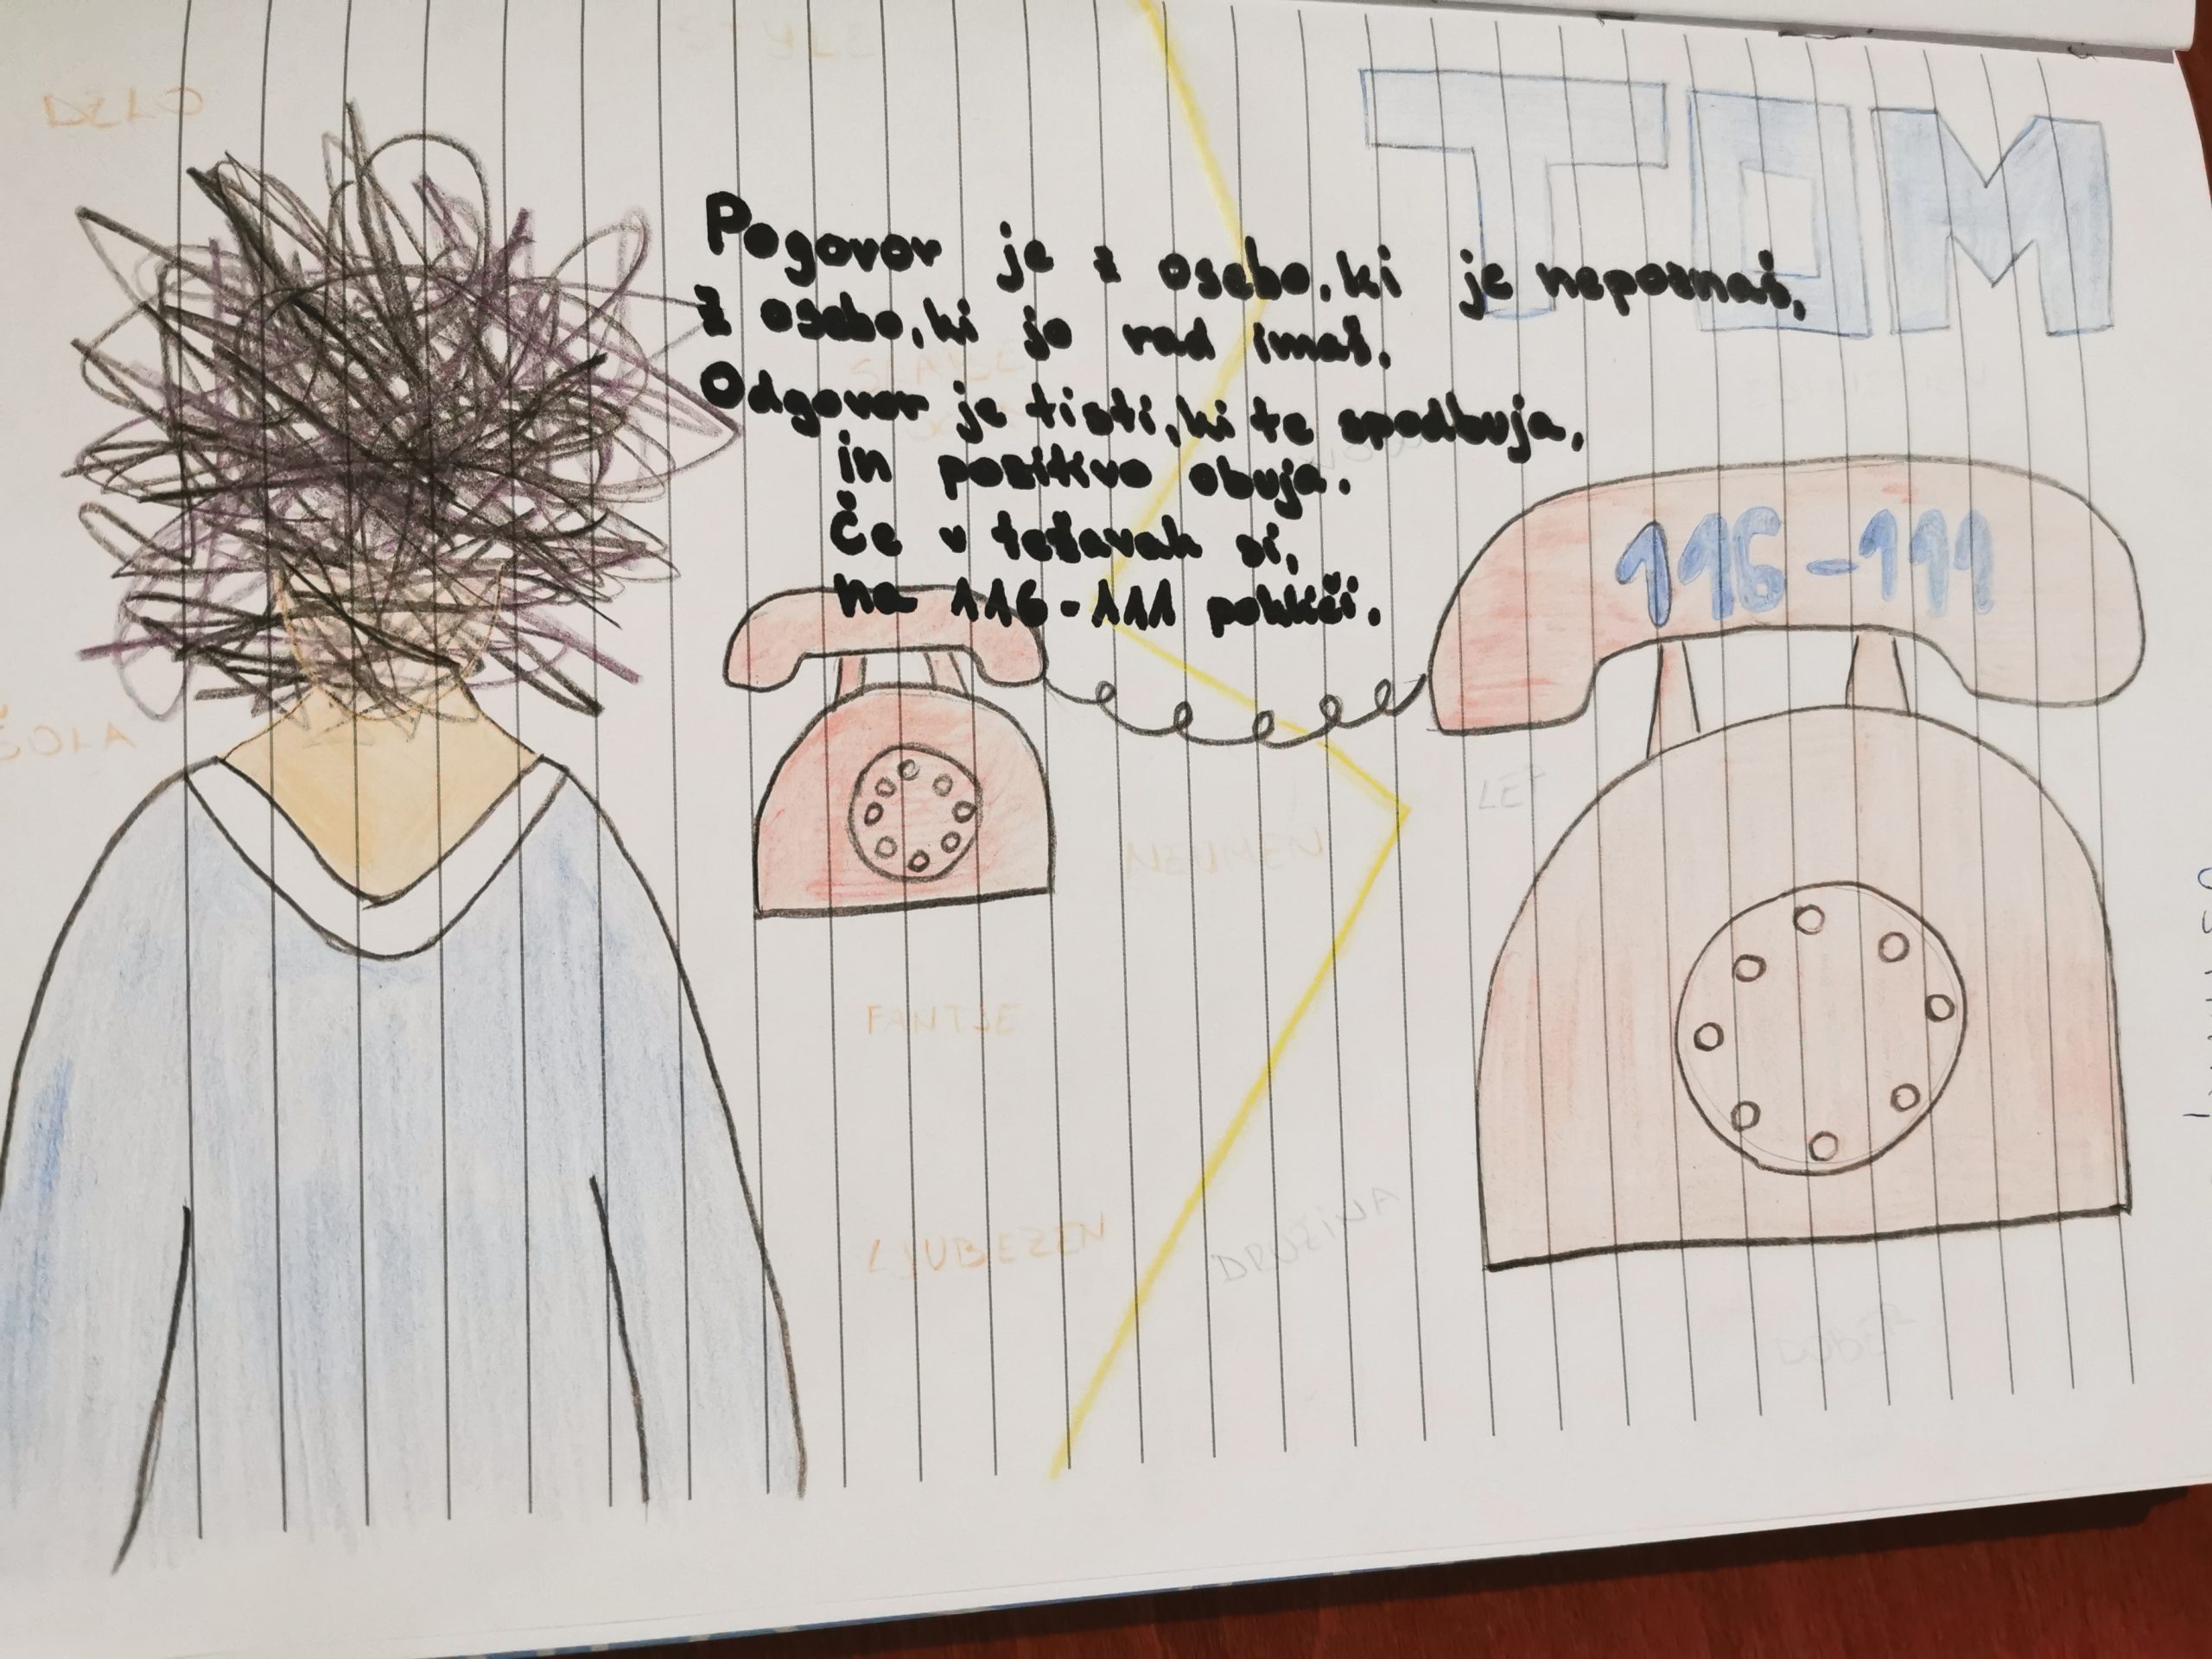 STYLE
DELO
TOM
Pogovor je z osebo, ki je nepoznaš,
z osebo, ki jo rad imaš.
Odgovor je tisti, ki te spodbuja,
in pozitivo obuja.
Če v težavah si,
na 116-111 pokliči.
116-111
ŠOLA
FANTJE
LJUBEZEN
DRUŽINA